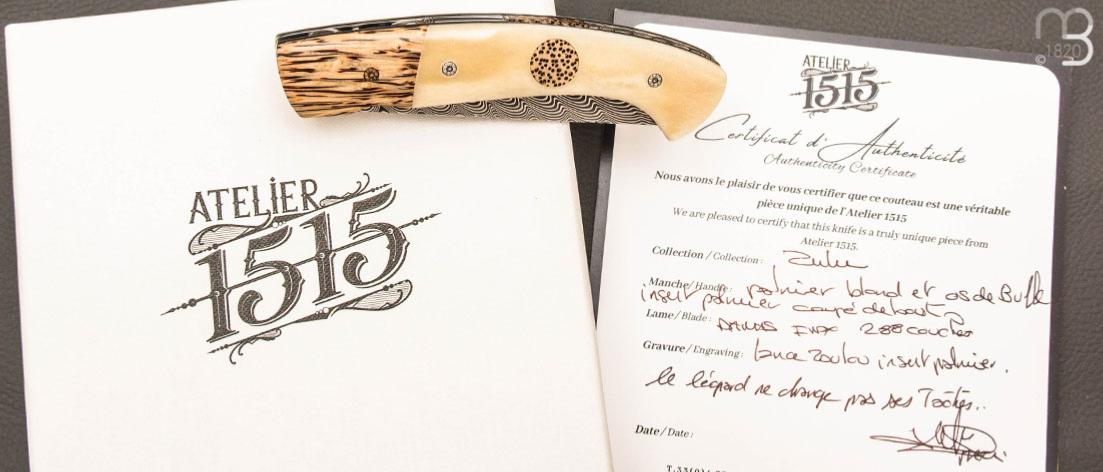 ATELIER
1515
MB
©1820
ATELIER
1515
Certificat d'Authenticité
Authenticity Certificate
Nous avons le plaisir de vous certifier que ce couteau est une véritable
pièce unique de l'Atelier 1515
We are pleased to certify that this knife is a truly unique piece from
Atelier 1515.
Collection / Collection : Zulu
Manche / Handle : palmier blond et os de Buffle
insert palmier coupé debout
Lame / Blade : DAMAS INOX 288 couches
Gravure / Engraving : lance Zoulou insert palmier.
le léopard ne change pas ses Taches..
Date / Date :